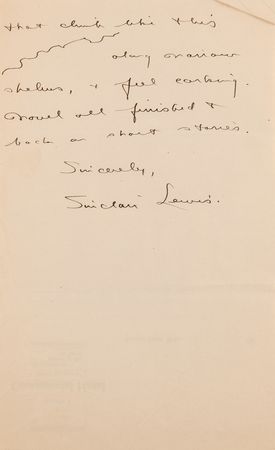 that climb like this
along narrow
shelves, & feel corking.
Novel all finished &
back on short stories.
Sincerely,
Sinclair Lewis.